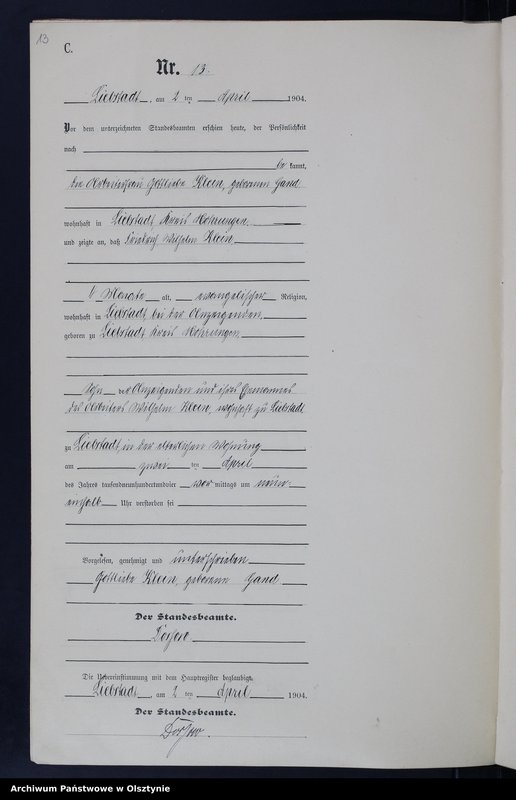 13
C.
Nr. 13.
Liebstadt, am 2 ten April 1904.
Vor dem unterzeichneten Standesbeamten erschien heute, der Persönlichkeit
nach
be kannt,
die Arbeiterfrau Gottliebe Klein, geborenen Gand
wohnhaft in Liebstadt Kreis Mohrungen
und zeigte an, daß Friedrich Wilhelm Klein
6 Monate alt, evangelischer Religion,
wohnhaft in Liebstadt bei der Anzeigenden
geboren zu Liebstadt Kreis Mohrungen
Sohn der Anzeigenden und ihres Ehemannes
des Arbeiters Wilhelm Klein, wohnhaft zu Liebstadt
zu Liebstadt, in der elterlichen Wohnung
am zwei ten April
des Jahres tausendneunhundertundvier vor mittags um neun
einhalb Uhr verstorben sei
Vorgelesen, genehmigt und unterschrieben
Gottliebe Klein, geborenen Gand
Der Standesbeamte.
Die Uebereinstimmung mit dem Hauptregister beglaubigt.
Liebstadt, am 2 ten April 1904.
Der Standesbeamte.
Archiwum Państwowe w Olsztynie